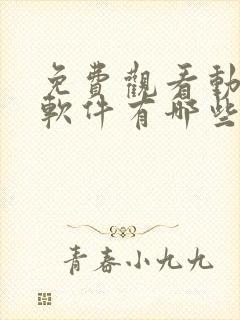 免費觀看動
軟件有哪些
青春小九九